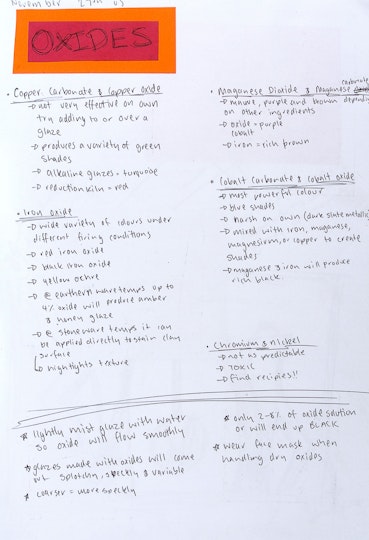 November 29th 03
OXIDES
• Copper Carbonate & Copper Oxide
→ not very effective on own
try adding to or over a
glaze
→ produces a variety of green
shades
→ alkaline glazes = turquoise
→ reduction kiln = red
• Iron Oxide
→ wide variety of colours under
different firing conditions
→ red iron oxide
→ black iron oxide
→ yellow ochre
→ @ earthenware temps up to
4% oxide will produce amber
& honey glaze
→ @ stoneware temps it can
be applied directly to stain clay
surface
→ highlights texture
• Maganese Dioxide & Maganese carbonate
→ mauve, purple and brown depending
on other ingredients
→ oxide = purple
cobalt
→ iron = rich brown
• Cobalt Carbonate & Cobalt Oxide
→ most powerful colour
→ blue shades
→ harsh on own (dark slate metallic)
→ mixed with iron, maganese,
magnesium, or copper to create
shades
→ maganese & iron will produce
rich black.
• Chromium & Nickel
→ not as predictable
→ TOXIC
→ Find recipies!!
* lightly mist glaze with water
so oxide will flow smoothly
* glazes made with oxides will come
out splotchy, speckly & variable
* coarser = more speckly
* only 2-8% of oxide solution
or will end up BLACK
* wear face mask when
handling dry oxides